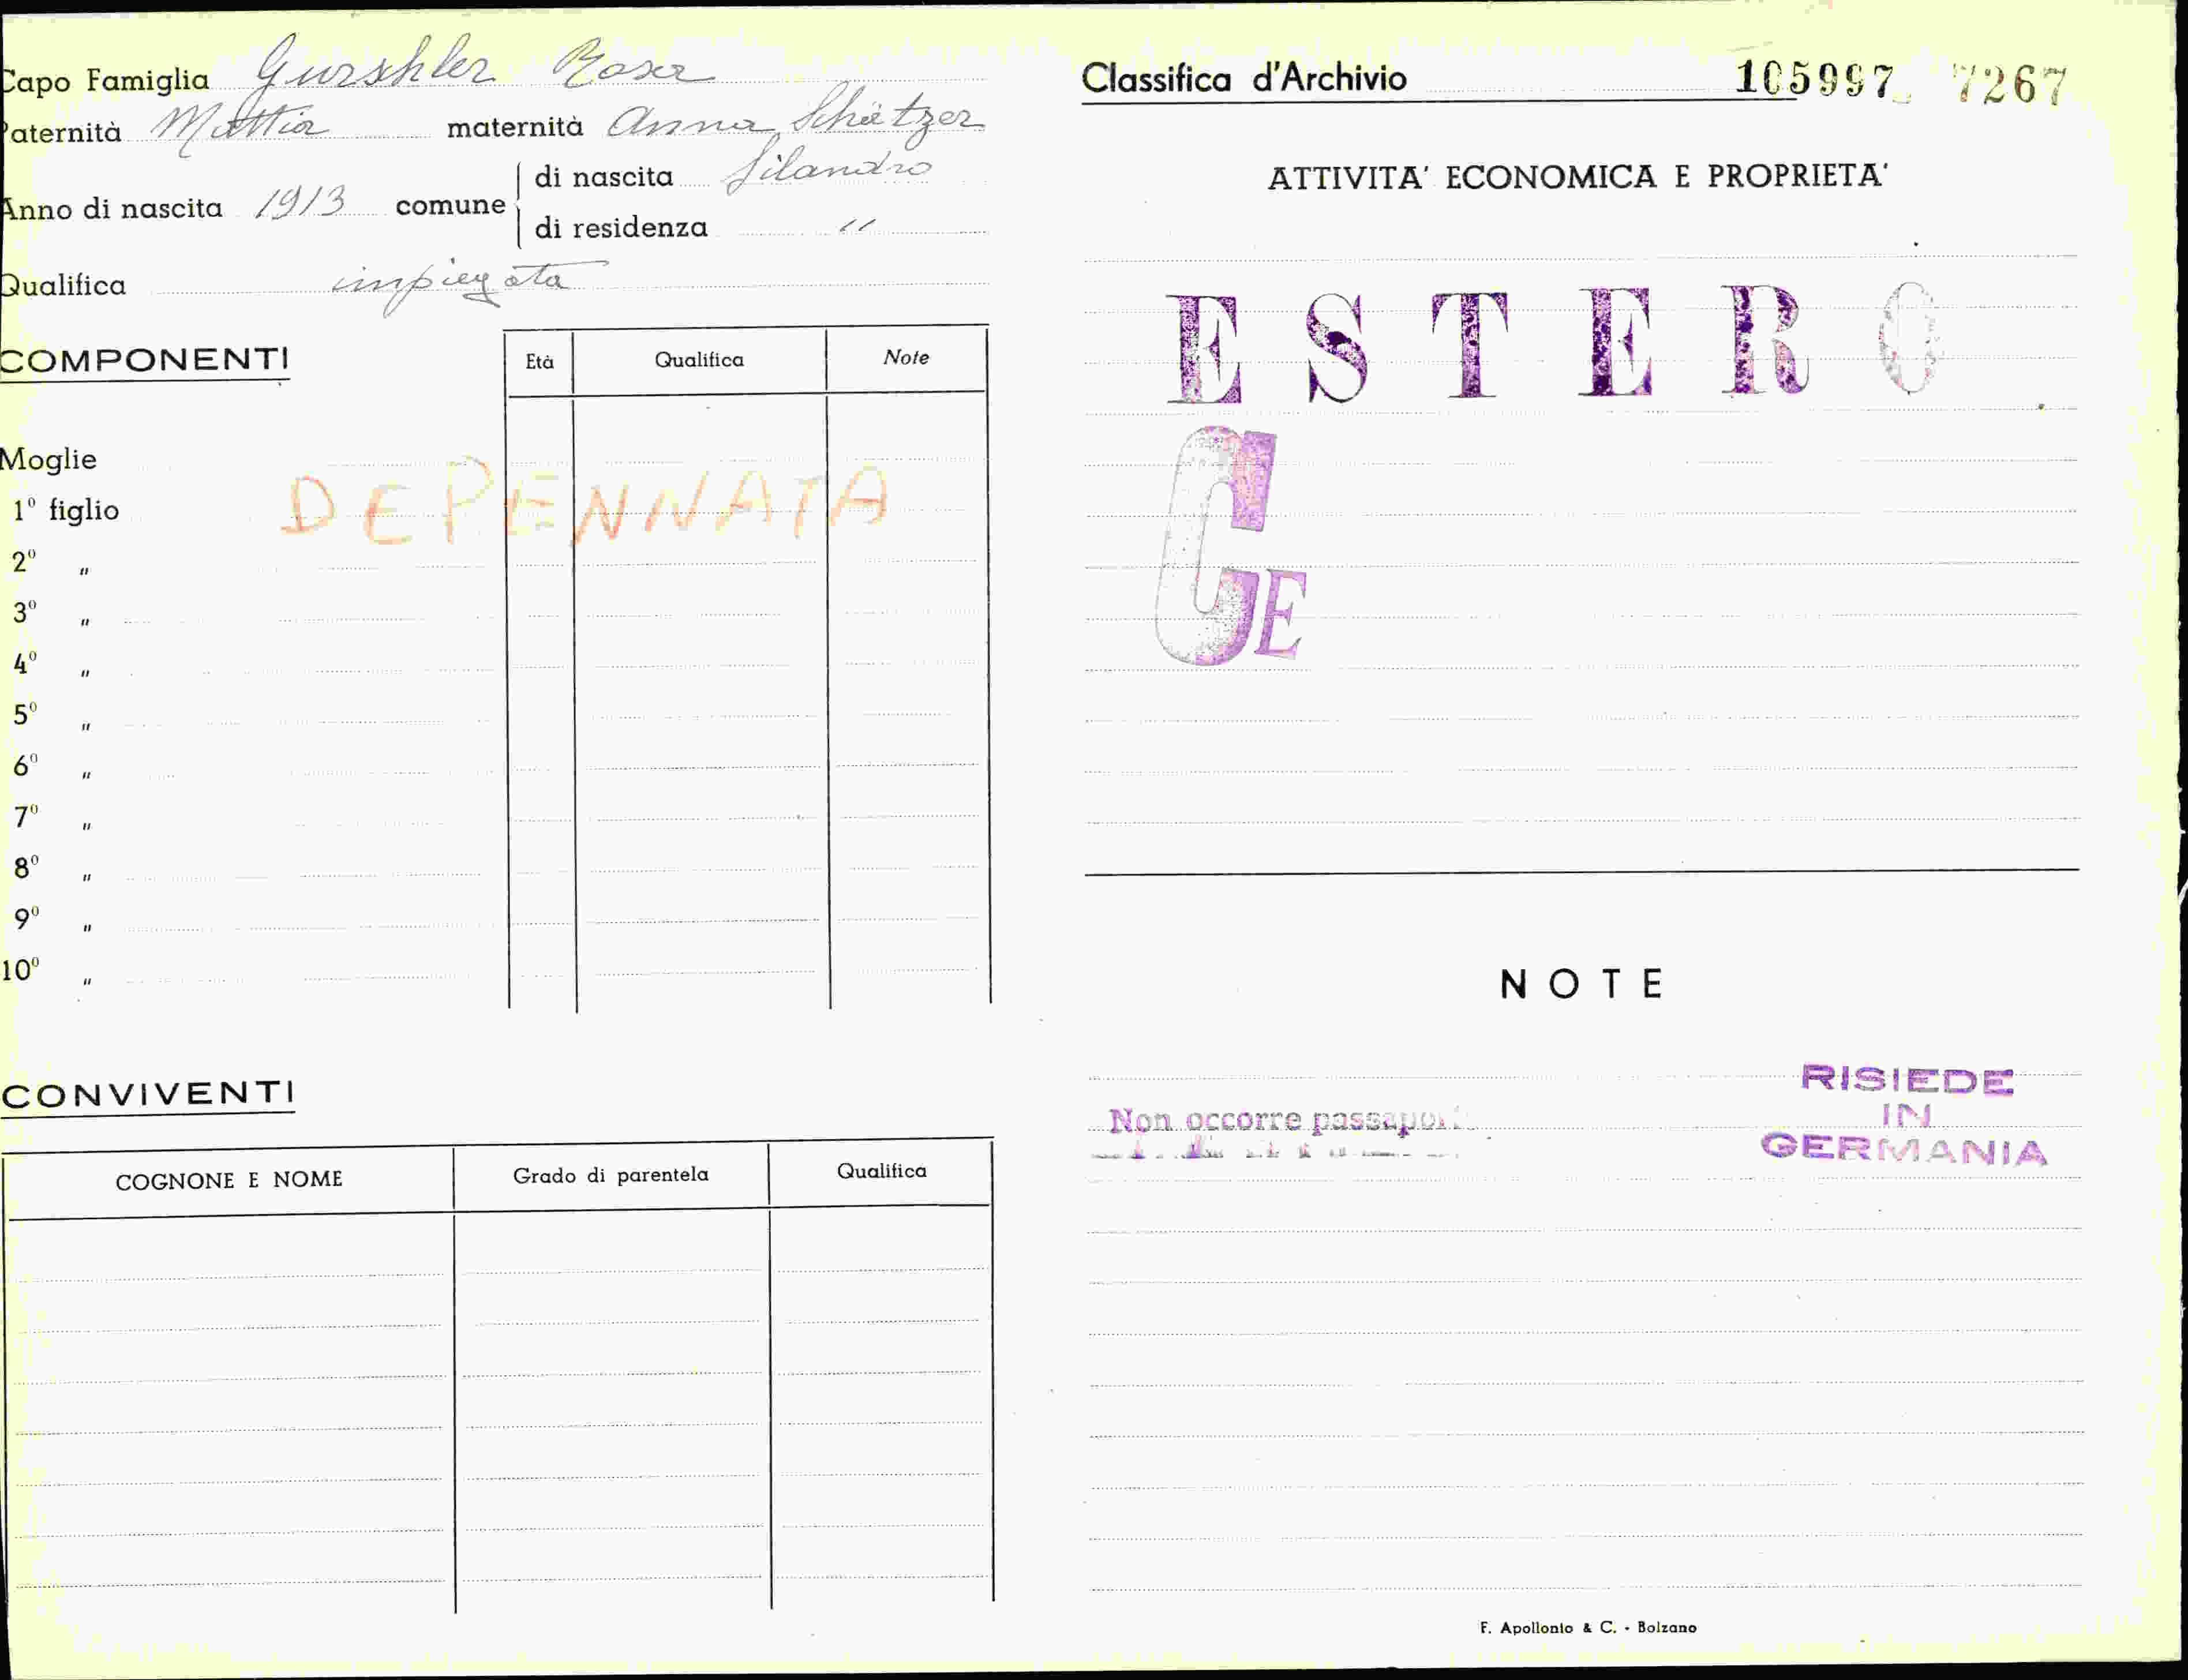 Capo Famiglia Gurschler Rosa
Paternità Mattia maternità Anna Schätzer
Anno di nascita 1913 comune di nascita Silandro
di residenza "
Qualifica impiegata
COMPONENTI Età Qualifica Note
Moglie
DEPENNATA
1º figlio
2º "
3º "
4º "
5º "
6º "
7º "
8º "
9º "
10º "
CONVIVENTI
COGNONE E NOME Grado di parentela Qualifica
Classifica d'Archivio 105997 7267
ATTIVITA' ECONOMICA E PROPRIETA'
ESTERO
G E
NOTE
RISIEDE
IN
GERMANIA
Non occorre
F. Apollonio & C. - Bolzano